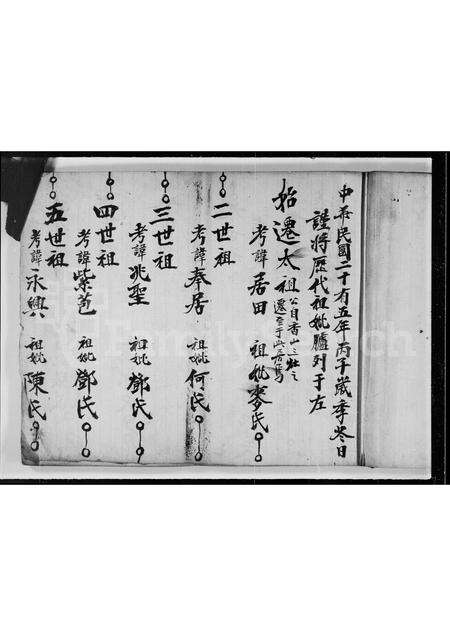 中華民國二十有五年丙子歲季冬日
謹將歷代祖妣臚列于左
始遷太祖 公自香山三灶之遷至于此居焉
考諱居田 祖妣麥氏
二世祖
考諱奉居 祖妣何氏
三世祖
考諱兆聖 祖妣鄧氏
四世祖
考諱紫苞 祖妣鄧氏
五世祖
考諱永興 祖妣陳氏
FamilySearch